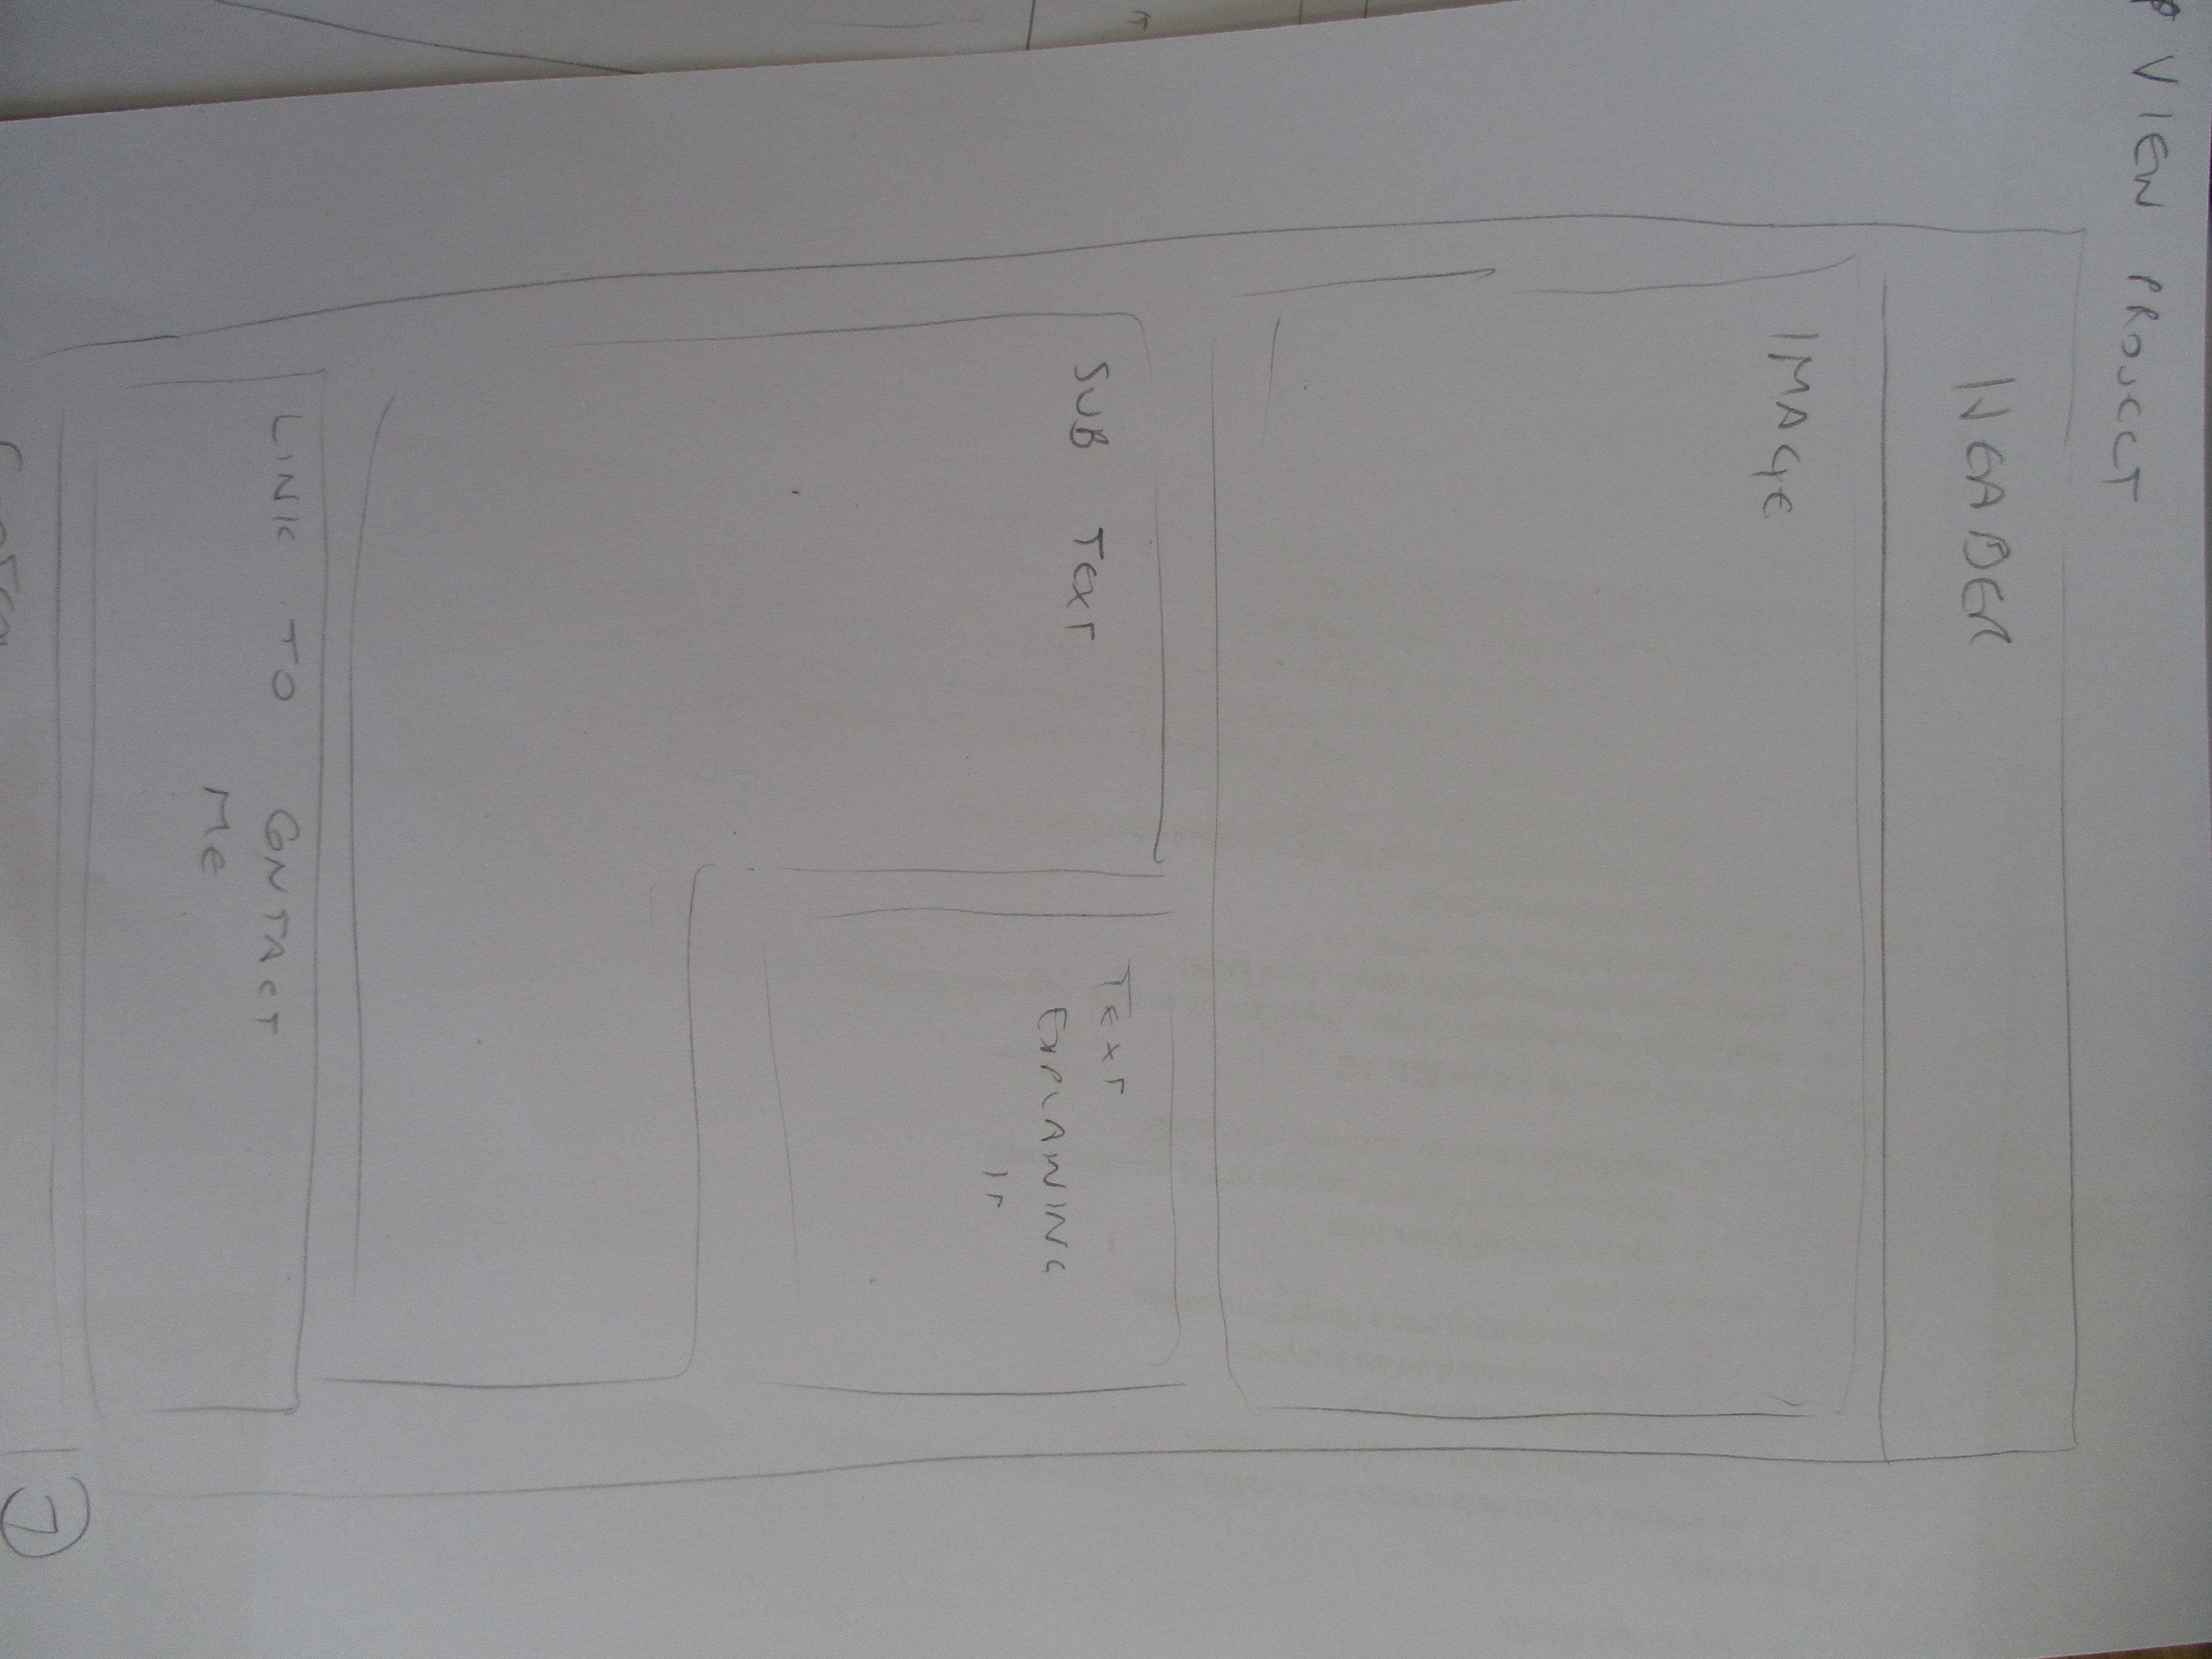 VIEW PROJECT
HEADER
IMAGE
SUB TEXT
TEXT
EXPLAINING
IT
LINK TO CONTACT
ME
7